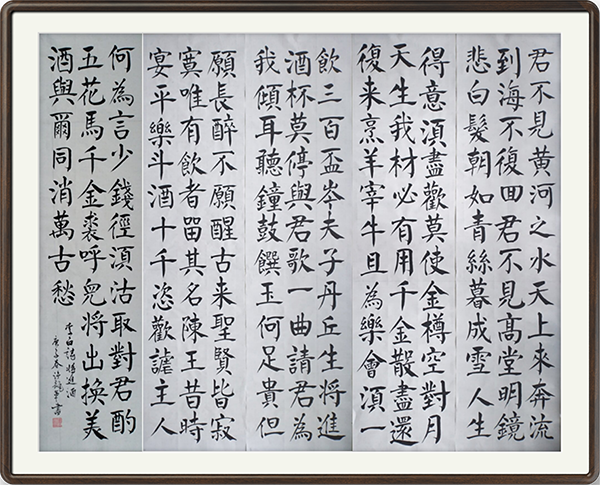 君不見黄河之水天上来奔流
到海不復回君不見髙堂明鏡
悲白髮朝如青絲暮成雪人生
得意湏盡歡莫使金樽空對月
天生我材必有用千金散盡還
復来烹羊宰牛且為樂會湏一
飲三百盃岑夫子丹丘生將進
酒杯莫停與君歌一曲請君為
我傾耳聽鐘鼓饌玉何足貴但
願長醉不願醒古来聖賢皆寂
寞唯有飲者畱其名陳王昔時
宴平樂斗酒十千恣歡謔主人
何為言少錢徑湏沽取對君酌
五花馬千金裘呼兒将出換美
酒與爾同消萬古愁
李白詩將進酒
庚子春許書